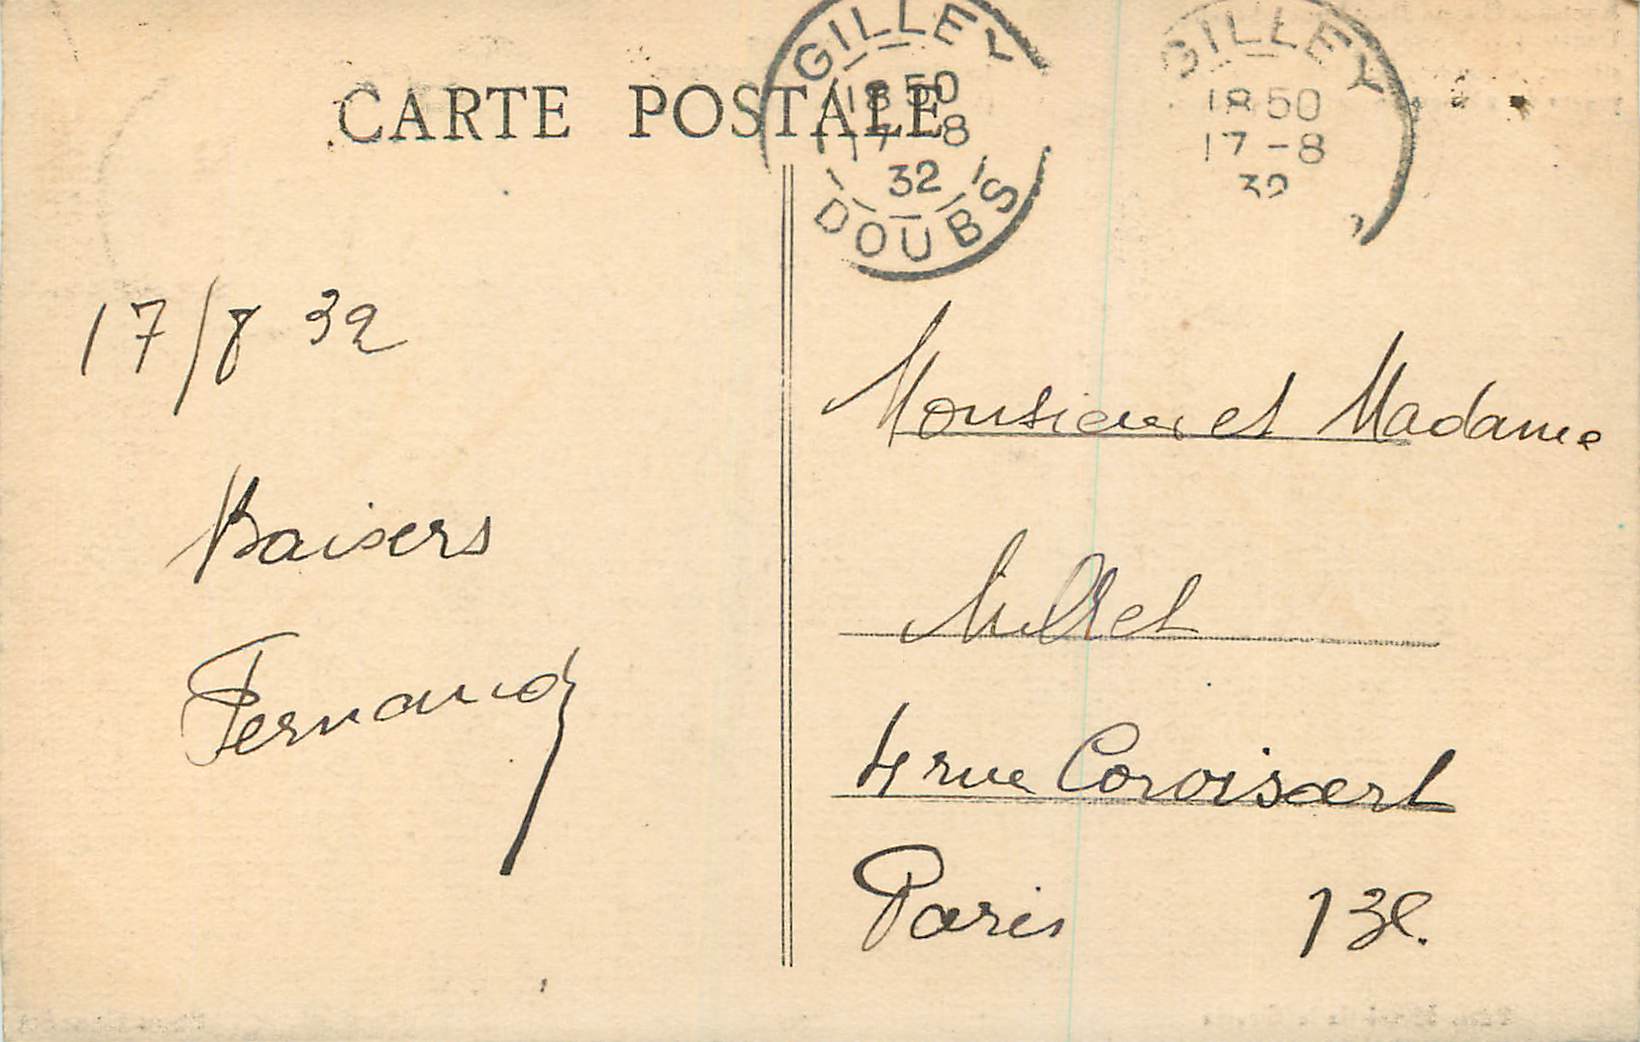 CARTE POSTALE
GILLEY
18 50
17 -8
32
DOUBS
GILLEY
18 50
17 -8
32
17/8 32
Baisers
Fernand
Monsieur et Madame
Millet
4 rue Coroisart
Paris 13e.